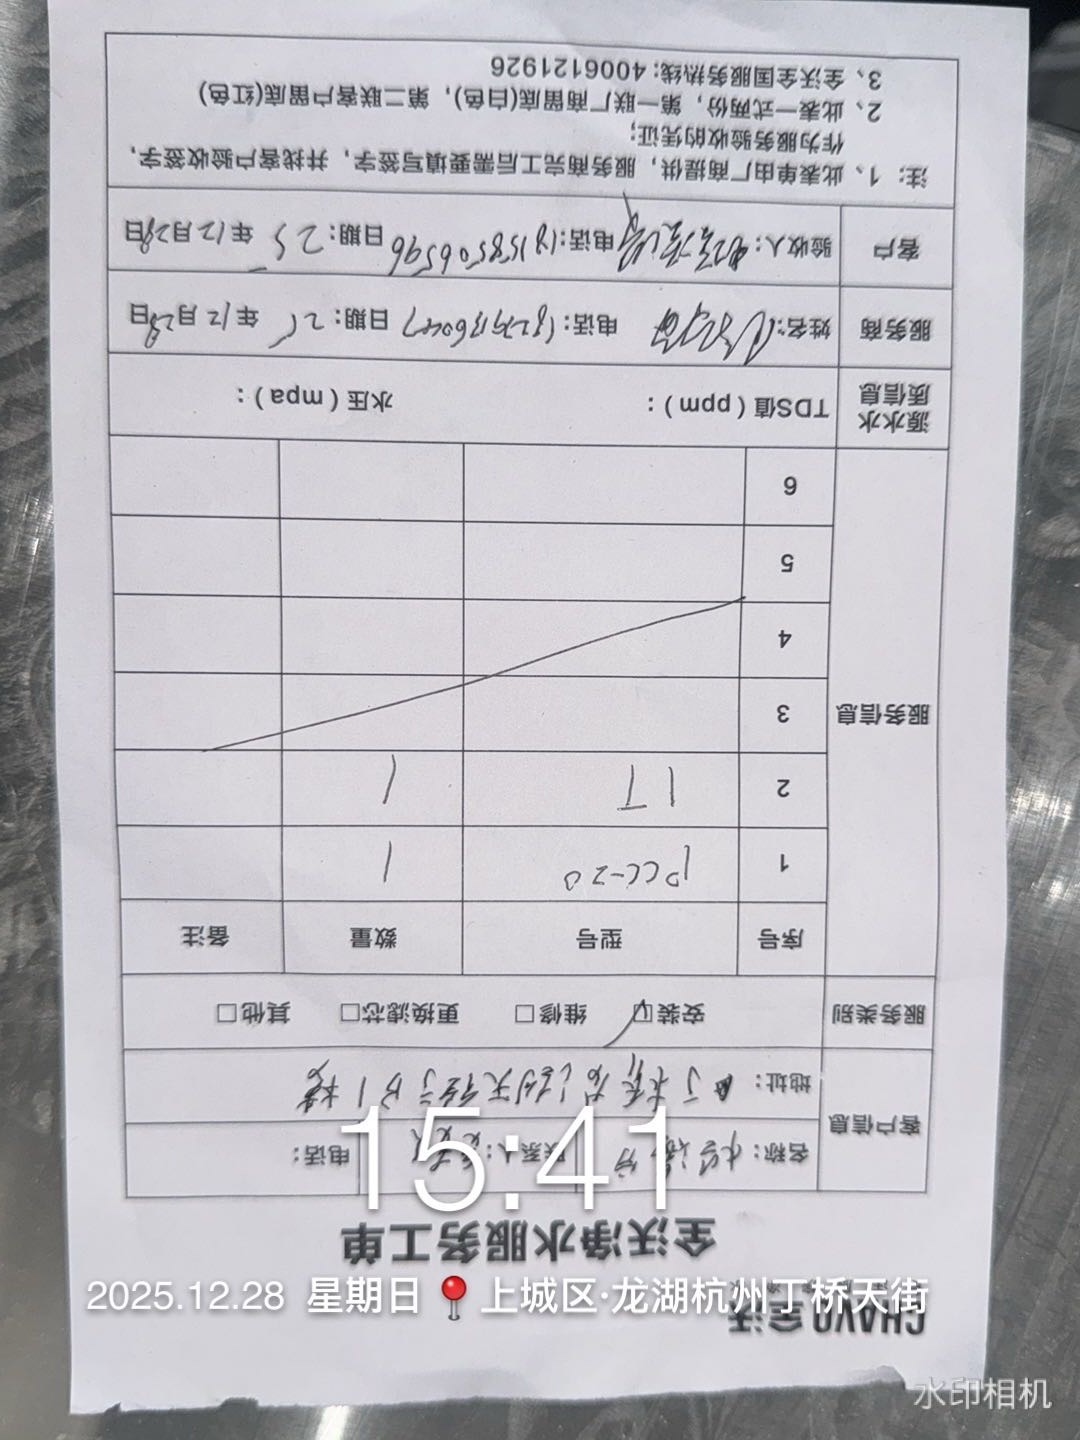 CHAVO 全沃
全沃净水服务工单
客户信息 名称： 联系人： 电话：
地址： 丁桥龙湖天街 1楼
服务类别 安装☑ 维修□ 更换滤芯□ 其他□
服务信息 序号 型号 数量 备注
1 PCC-20 1
2 1T 1
3
4
5
6
源水水质信息 TDS值（ppm）： 水压（mpa）：
服务商 姓名： 电话： 日期：25年12月28日
客户 验收人： 电话：18158506596 日期：25年12月28日
注：1、此表单由厂商提供，服务商完工后需要填写签字，并找客户验收签字，
作为服务验收的凭证；
2、此表一式两份，第一联厂商留底(白色)，第二联客户留底(红色)
3、全沃全国服务热线：4006121926
15:41
2025.12.28 星期日 上城区·龙湖杭州丁桥天街
水印相机